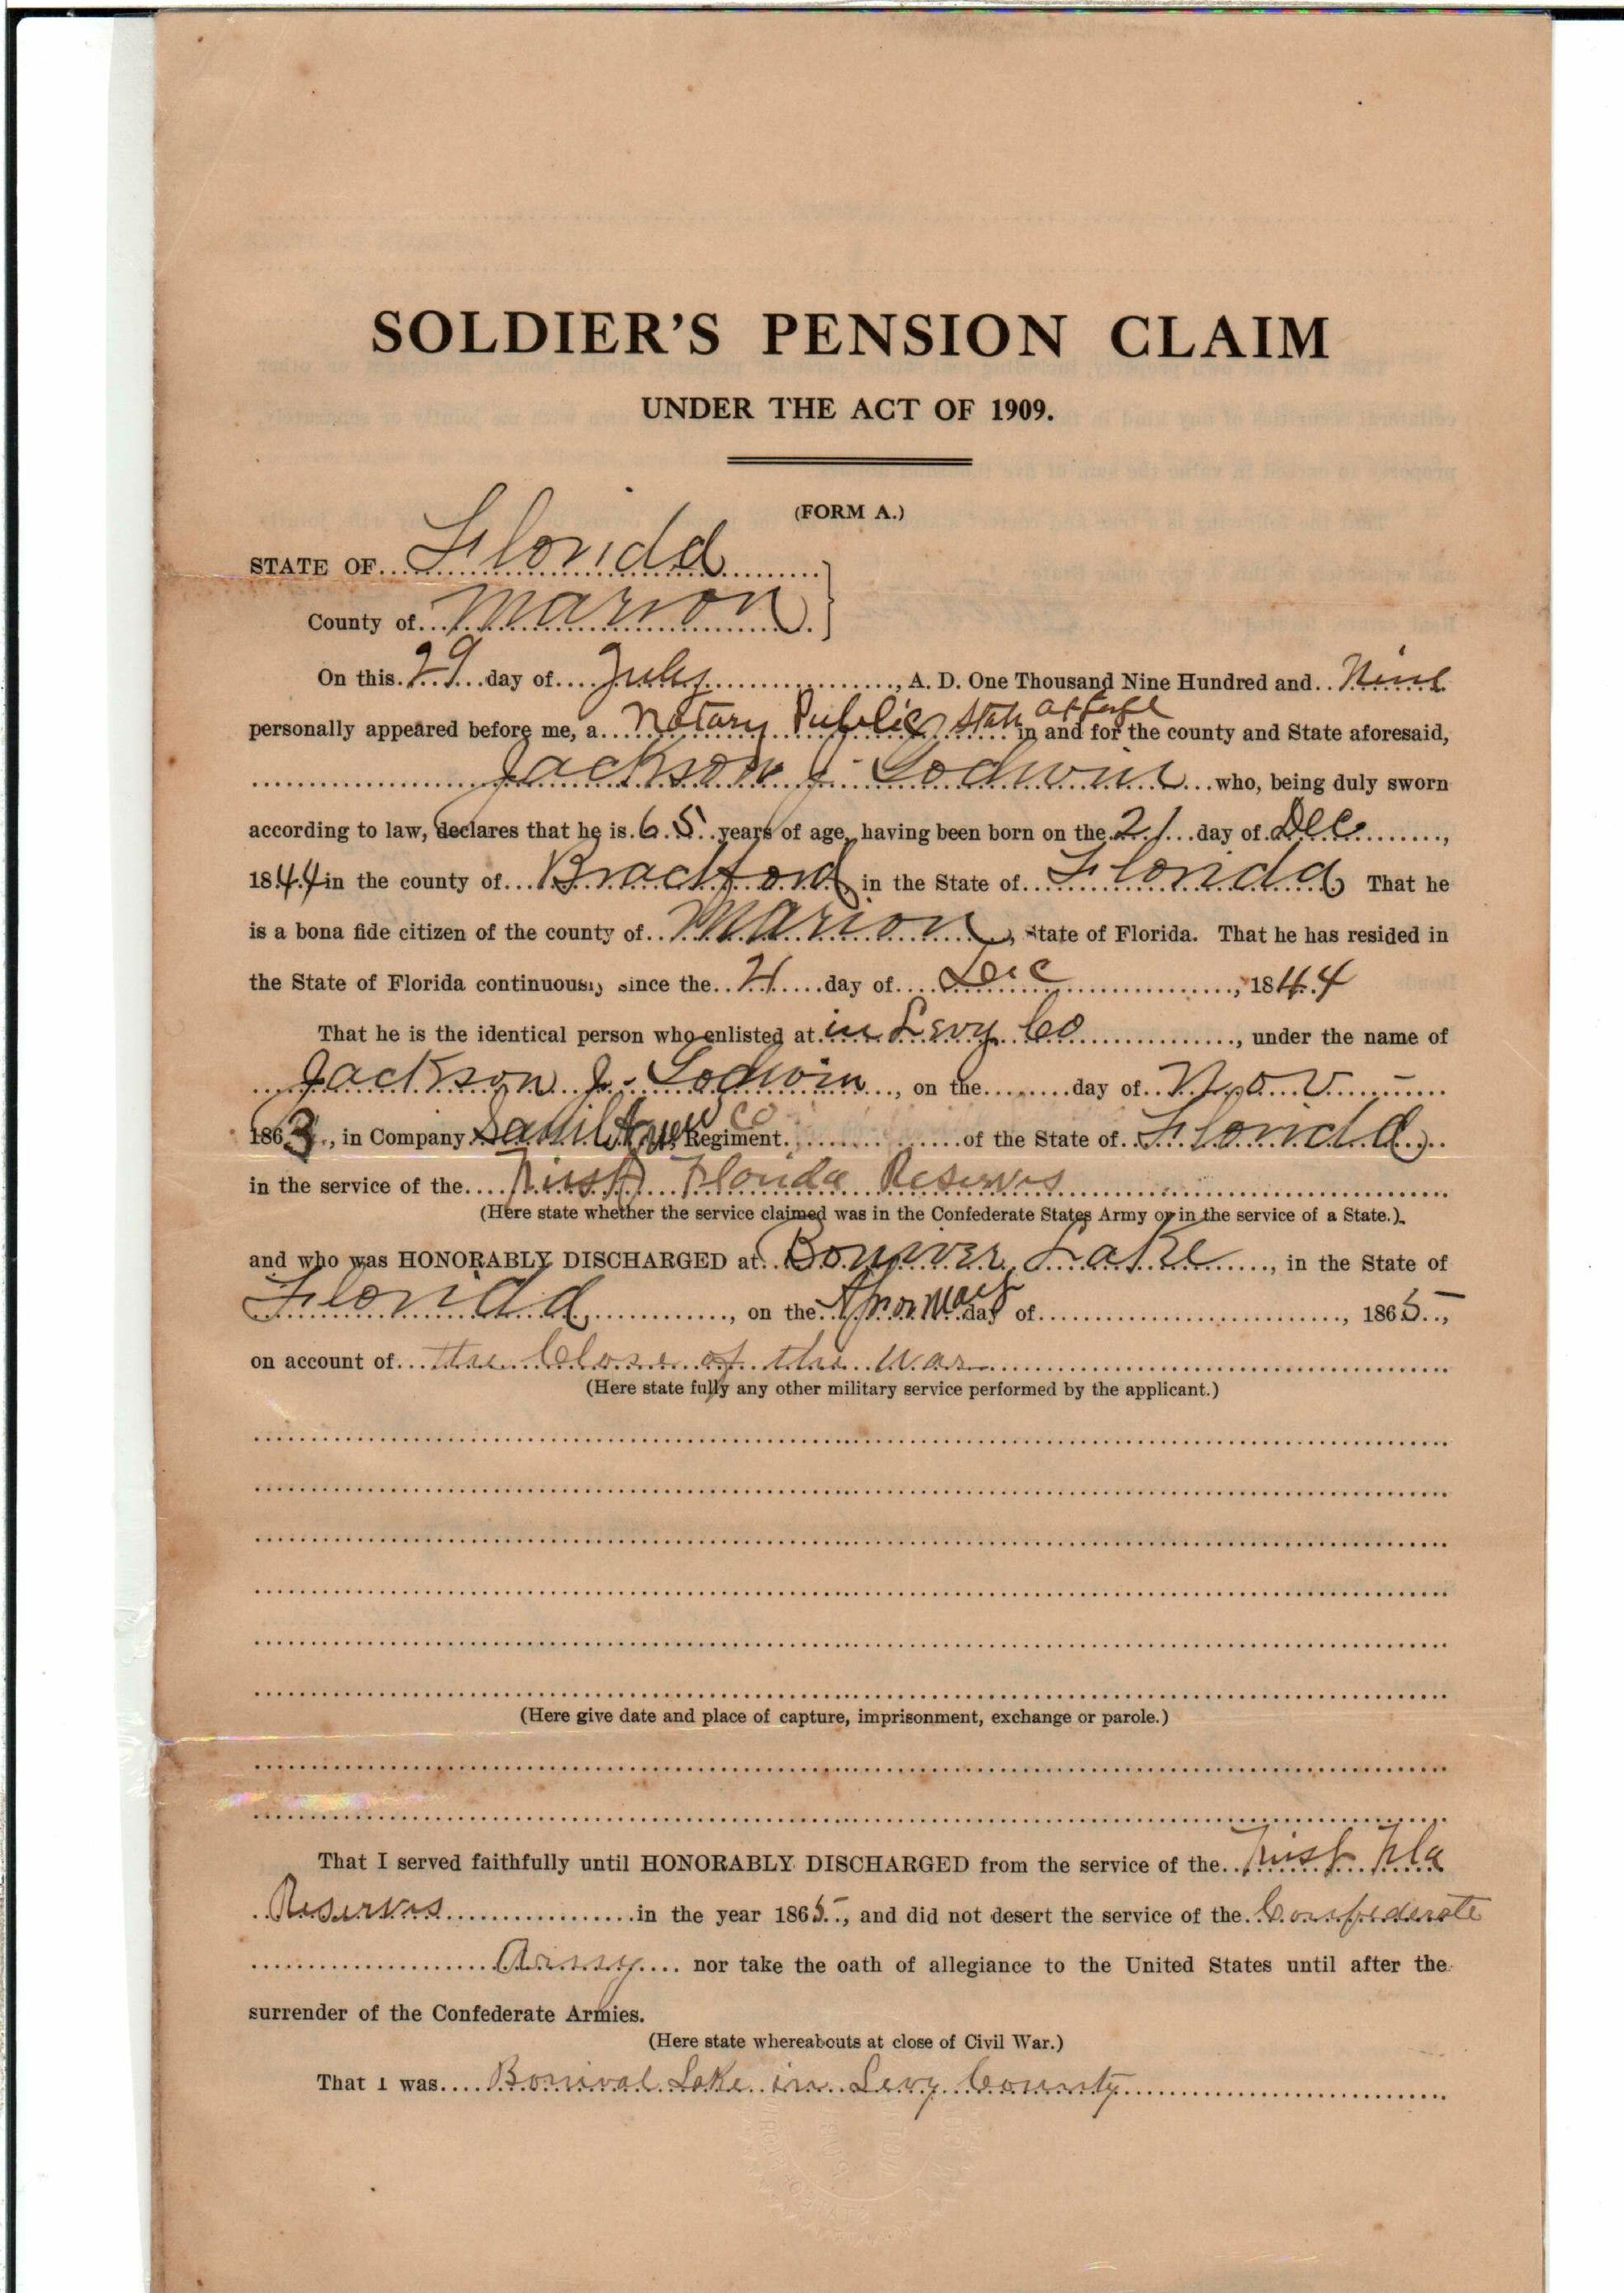 SOLDIER'S PENSION CLAIM
UNDER THE ACT OF 1909.
(FORM A.)
STATE OF Florida
County of Marion
On this 29 day of July, A. D. One Thousand Nine Hundred and Nine
personally appeared before me, a Notary Public State at large in and for the county and State aforesaid,
Jackson J. Godwin who, being duly sworn
according to law, declares that he is 65 years of age, having been born on the 21 day of Dec,
1844 in the county of Bradford, in the State of Florida That he
is a bona fide citizen of the county of Marion, State of Florida. That he has resided in
the State of Florida continuously since the 21 day of Dec, 1844
That he is the identical person who enlisted at in Levy Co, under the name of
Jackson J. Godwin, on the day of Nov
1863, in Company Co Regiment of the State of Florida
in the service of the First Florida Reserves
(Here state whether the service claimed was in the Confederate States Army or in the service of a State.)
and who was HONORABLY DISCHARGED at Lake, in the State of
Florida, on the Apr or May day of, 1865,
on account of the Close of the War
(Here state fully any other military service performed by the applicant.)
(Here give date and place of capture, imprisonment, exchange or parole.)
That I served faithfully until HONORABLY DISCHARGED from the service of the First Fla
Reserves in the year 1865, and did not desert the service of the Confederate
Army nor take the oath of allegiance to the United States until after the
surrender of the Confederate Armies.
(Here state whereabouts at close of Civil War.)
That I was Bonival Lake in Levy County